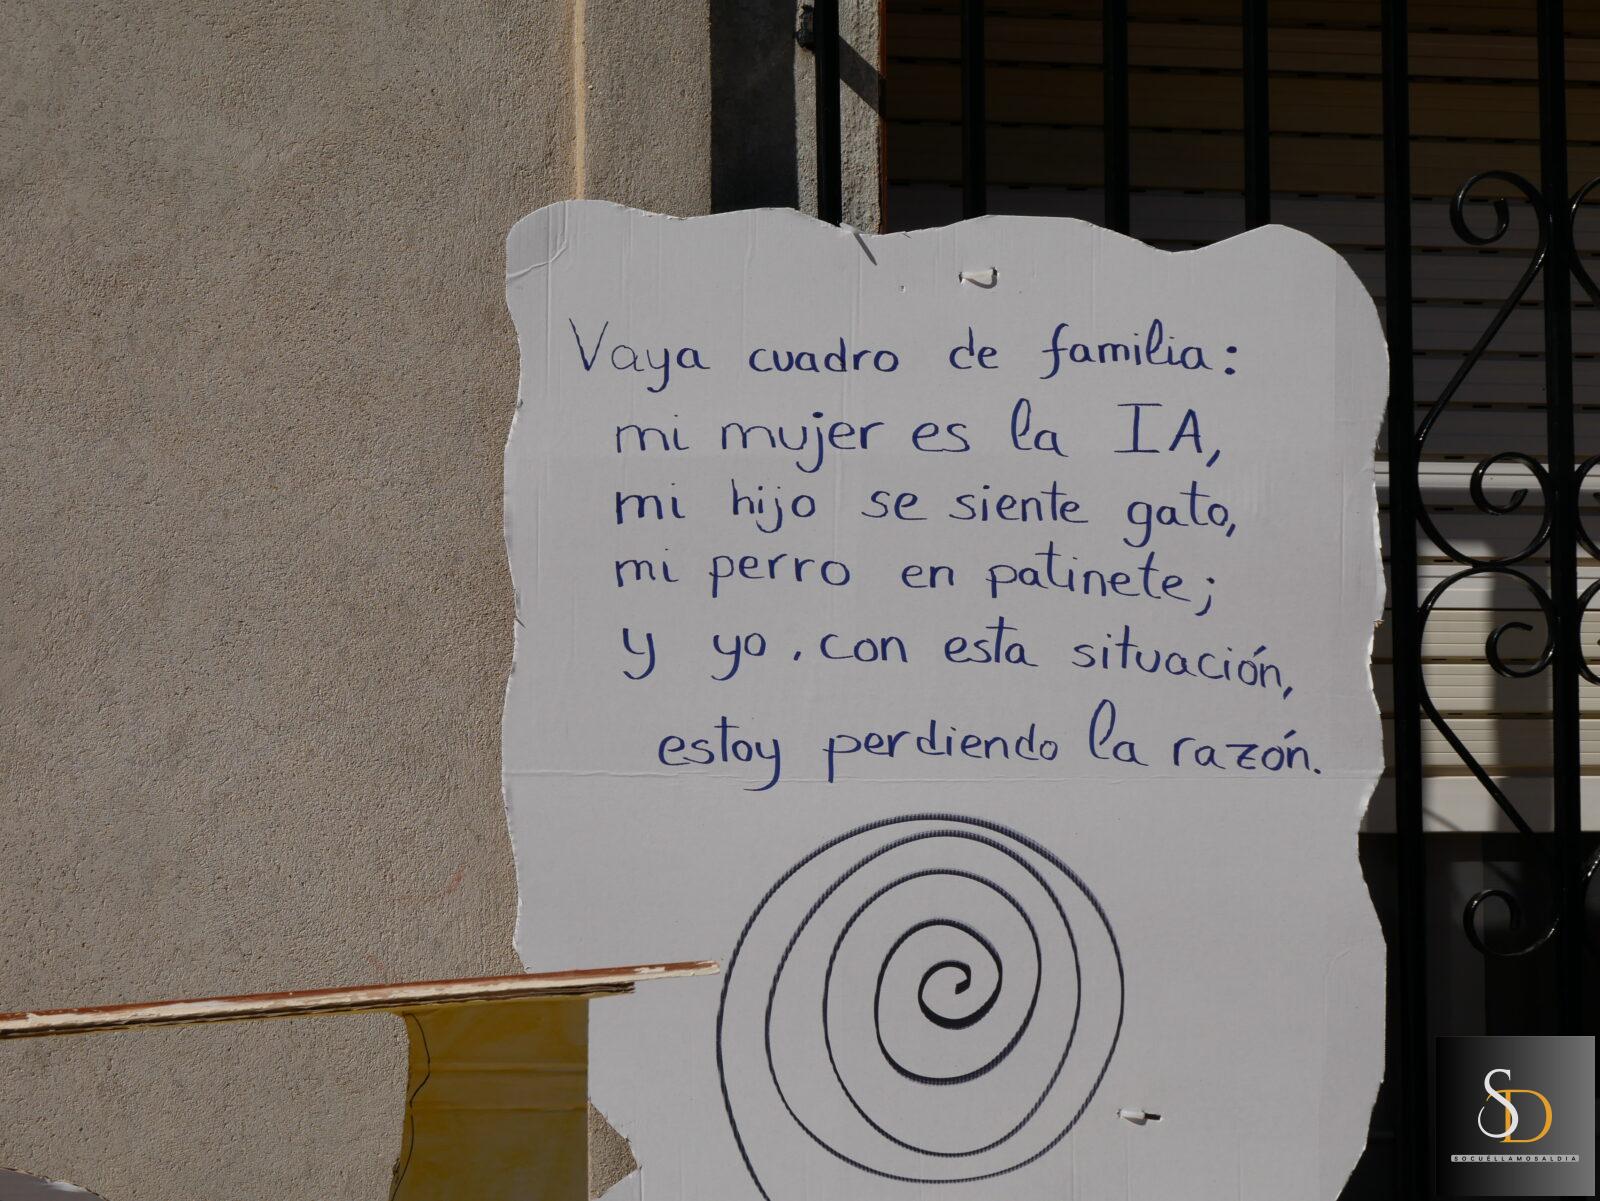 Vaya cuadro de familia:
mi mujer es la IA,
mi hijo se siente gato,
mi perro en patinete;
y yo, con esta situación,
estoy perdiendo la razón.
SD
SOCUÉLLAMOSALDIA